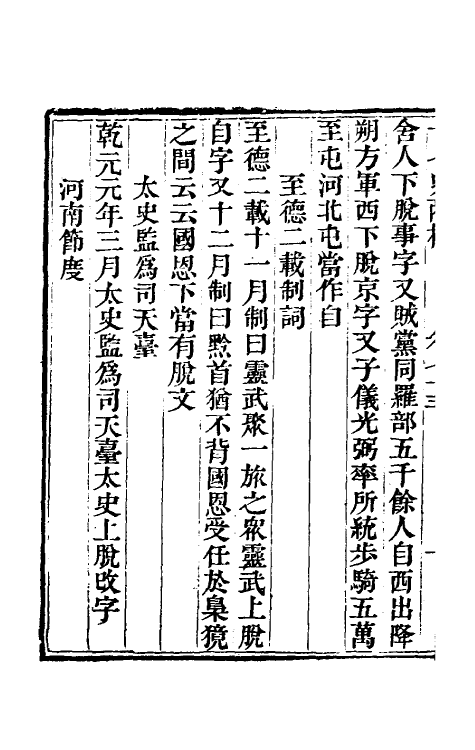 舍人下脫事字又賊黨同羅部五千餘人自西出降
朔方軍西下脫京字又子儀光弼率所統步騎五萬
至屯河北屯當作自
至德二載制詞
至德二載十一月制曰靈武聚一旅之眾靈武上脫
自字又十二月制曰黔首猶不背國恩受任於梟獍
之間云云國恩下當有脫文
太史監爲司天臺
乾元元年三月太史監爲司天臺太史上脫改字
河南節度